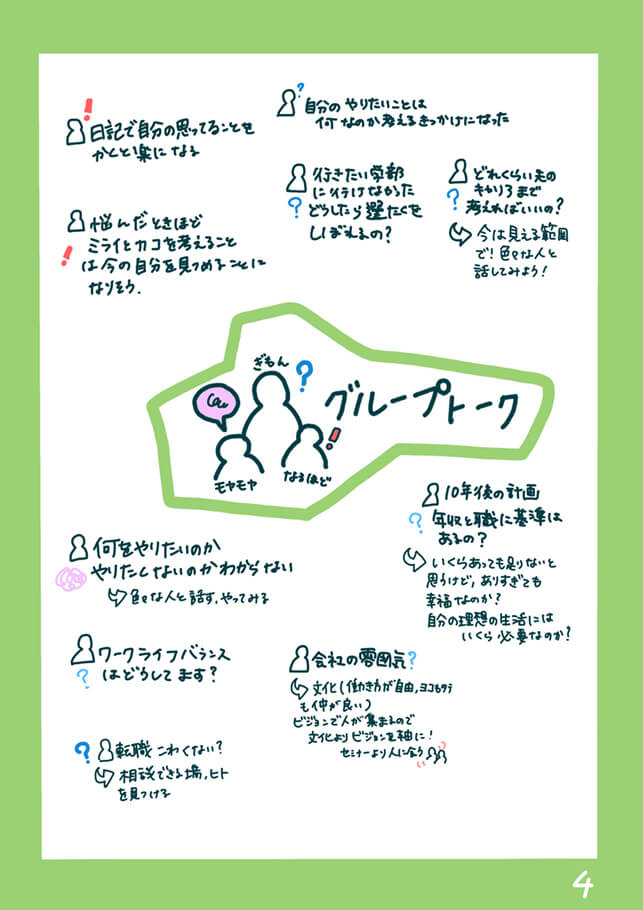 日記で自分の思ってることを
かくと楽になる
自分のやりたいことは
何なのか考えるきっかけになった
行きたい学部
に行けなかった
どうしたら選たくを
しぼれるの?
どれくらい先の
キャリアまで
考えればいいの?
今は見える範囲
で!色々な人と
話してみよう!
悩んだときほど
ミライとカコを考えること
は今の自分を見つめることに
なりそう.
ぎもん
グループトーク
モヤモヤ
なるほど
10年後の計画
年収と職に基準は
あるの?
いくらあっても足りないと
思うけど,ありすぎても
幸福なのか?
自分の理想の生活には
いくら必要なのか?
何をやりたいのか
やりたくないのかわからない
色々な人と話す,やってみる
ワークライフバランス
はどうしてます?
会社の雰囲気?
文化(働き方が自由,ヨコもタテ
も仲が良い)
ビジョンで人が集まるので
文化よりビジョンを軸に!
セミナーより人に会う
転職こわくない?
相談できる場,ヒト
を見つける
4